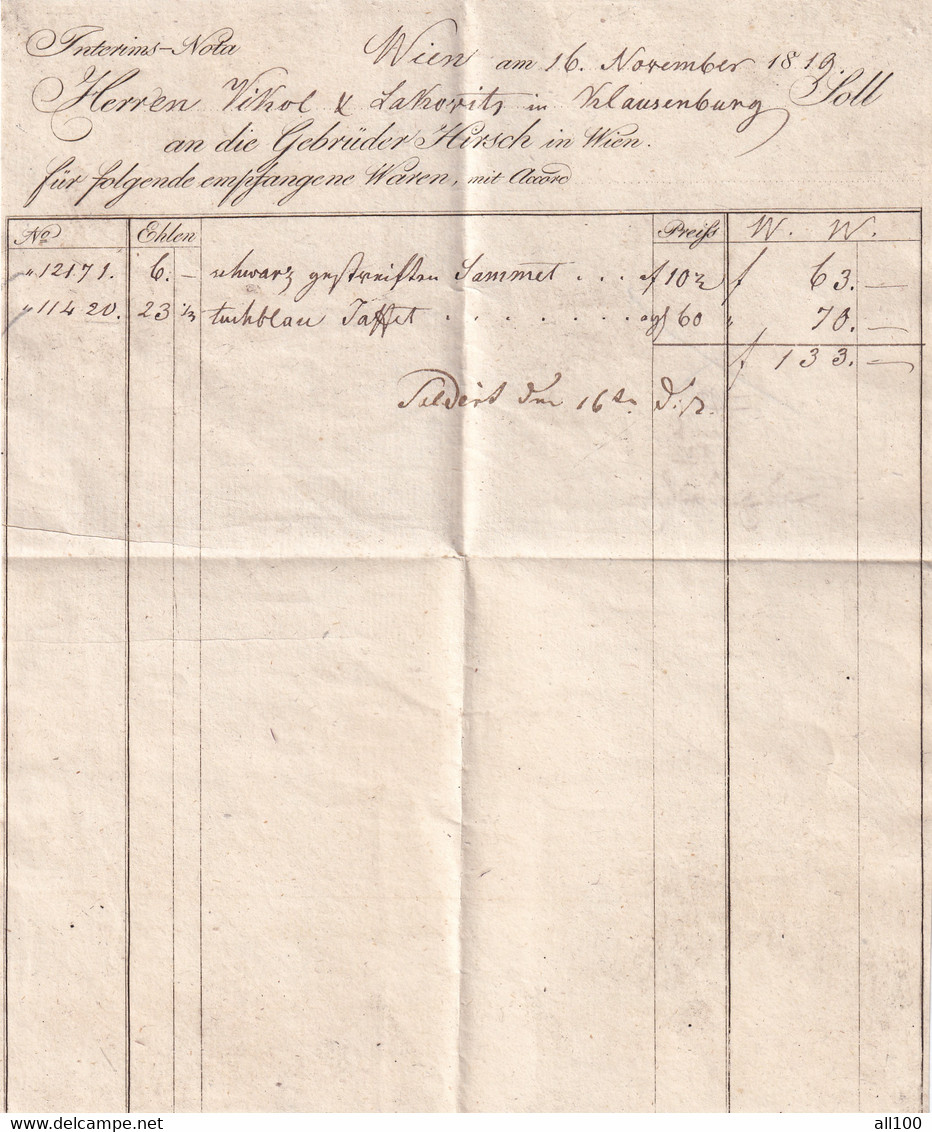 Interims-Nota Wien am 16. November 1819.
Herren Vikol & Lakovits in Klausenburg Soll
an die Gebrüder Hirsch in Wien.
für folgende empfangene Waren, mit Accord
No Ehlen Preiß W. W.
" 12171. 6. — schwarz gestreiften Sammet . . . a f 10½ f 63. —
" 11420. 23 ⅓ tuchblau Taffet . . . . . . . . 60 " 70. —
f 133. —
Saldirt den 16t
all100